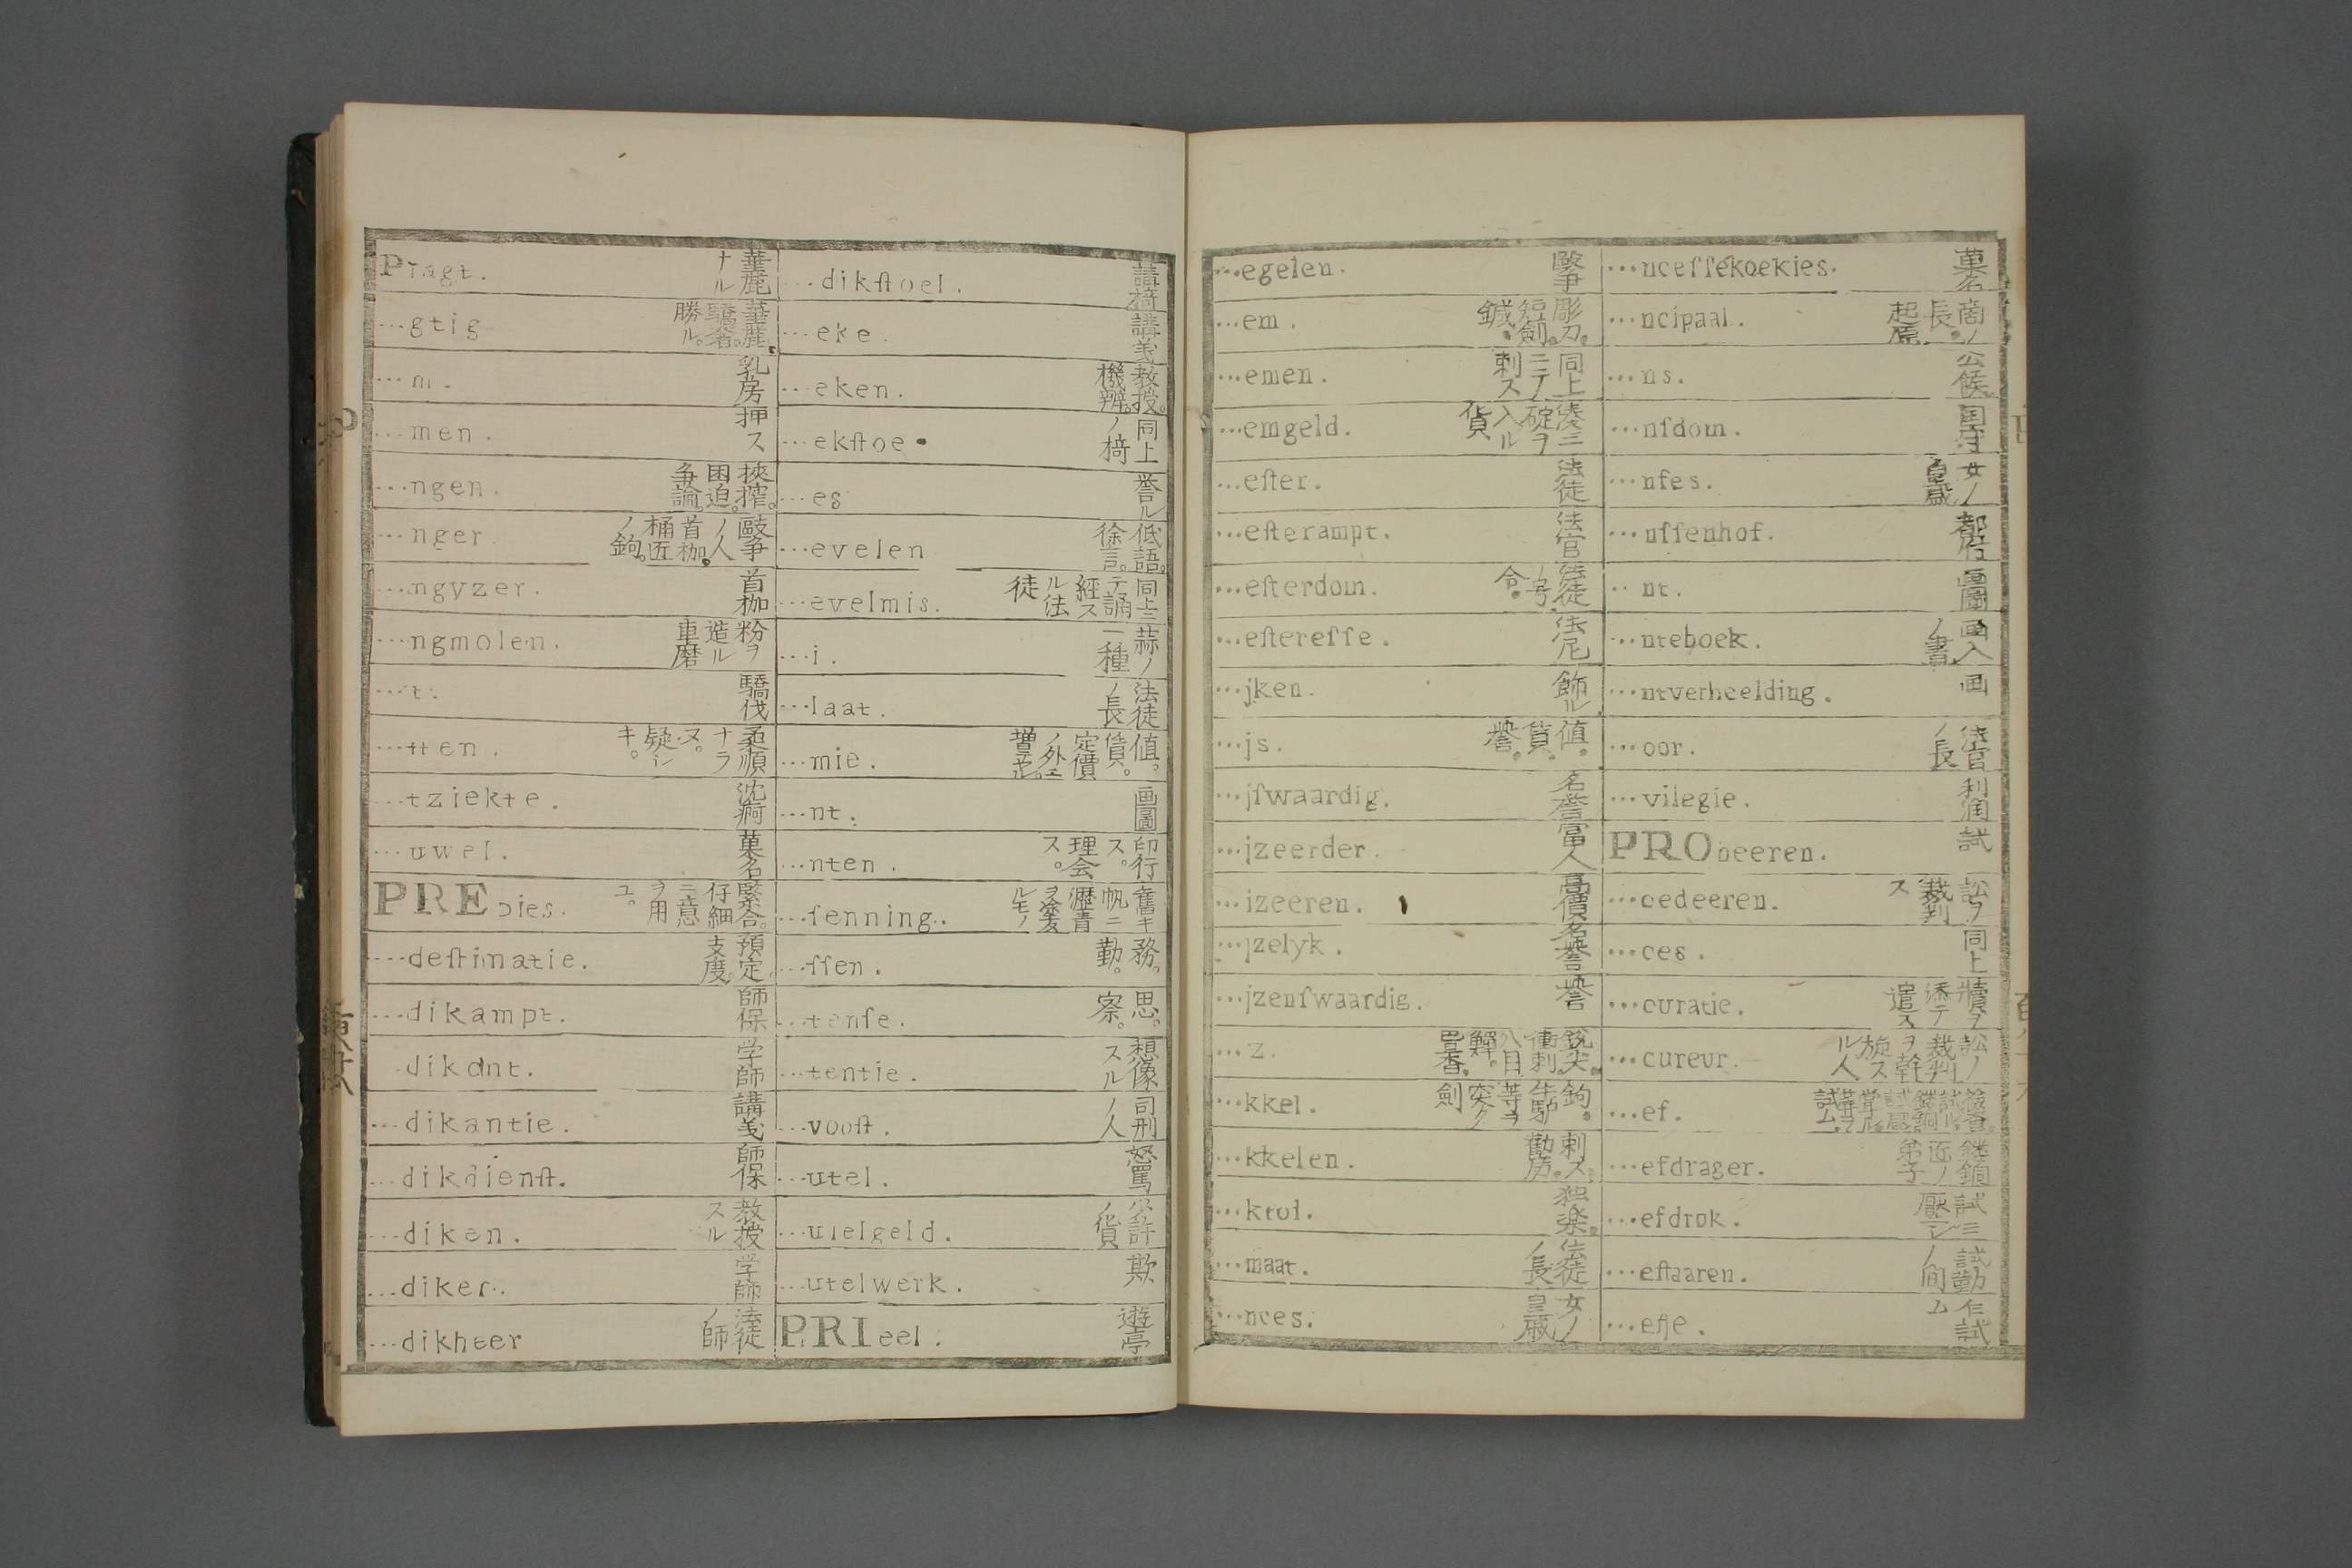 Pragt. 華麗ナル
...gtig 華麗。驕奢。勝ル。
...m. 乳房
...men. 押ス
...ngen. 挾搾。困迫。争論。
...nger. 毆争ノ人 首枷。桶匠ノ鉤。
...ngyzer. 首枷
...ngmolen. 粉ヲ造ル車磨
...t. 驕伐
...tten. 柔順ナラヌ。疑シキ。
...tziekte. 沈痾
...uwel. 菓名
PREcies. 緊合。仔細ニ意ヲ用ユ。
...deſtinatie. 預定。支度。
...dikampt. 師保
...dikant. 学師
...dikantie. 講義
...dikdienſt. 師保
...diken. 教授スル
...diker. 学師
...dikheer 法徒ノ師
...dikſtoel. 講椅
...eke. 講義
...eken. 教授。機辨。
...ekſtoe 同上ノ椅
...es 誉ル
...evelen 低語。徐言。
...evelmis. 同上ニテ誦經スル法徒
...i. 蒜ノ一種
...laat. 法徒ノ長
...mie. 値。貨。定價ノ外ニ増
...nt. 画圖
...nten. 印行ス。理会ス。
...ſenning. 舊キ帆ニ瀝青ヲ塗ルモノ
...ſſen. 務。勤。
...tenſe. 思。察。
...tentie. 想像スル
...vooſt. 司刑ノ人
...utel. 怒罵
...utelgeld. 公許ノ貨
...utelwerk. 欺
PRIeel. 遊亭
...egelen.
...em. 彫刀。短劍。鍼。
...emen. 同上ニテ刺ス
...emgeld. 湊ニ碇ヲ入ル貨
...eſter. 法徒
...eſterampt. 法官
...eſterdom. 法徒ノ号令。
...eſtereſſe. 法尼
...jken. 飾ル
...js. 値。貨。誉。
...jſwaardig. 名誉
...jzeerder. 富人
...izeeren. 高價
...jzelyk. 名誉
...jzenſwaardig. 誉
...z. 鋭尖。衝刺。
...kkel. 鉤。牛馿等ヲ突ク劍
...kkelen. 刺ス。勸励。
...ktol. 独楽。
...maat. 法徒ノ長
...nces. 女ノ皇戚
...nceſſekoekies. 菓名
...ncipaal. 商ノ長。起原
...ns. 公候
...nſdom. 国守
...nſes. 女ノ皇戚
...nſſenhof. 都府
...nt. 画圖
...nteboek. 画入ノ書
...ntverheelding. 画
...oor. 法官ノ長
...vilegie. 利潤
PRObeeren. 試
...cedeeren. 訟ヲ裁判ス
...ces. 同上
...curatie. 牘ヲ添テ遣ス
...cureur. 訟ノ裁判ヲ幹旋スル人
...ef.
...efdrager. 弟子
...efdruk. 試ニ壓
...eftaaren. 試勤ノ間
...efje. 試ム